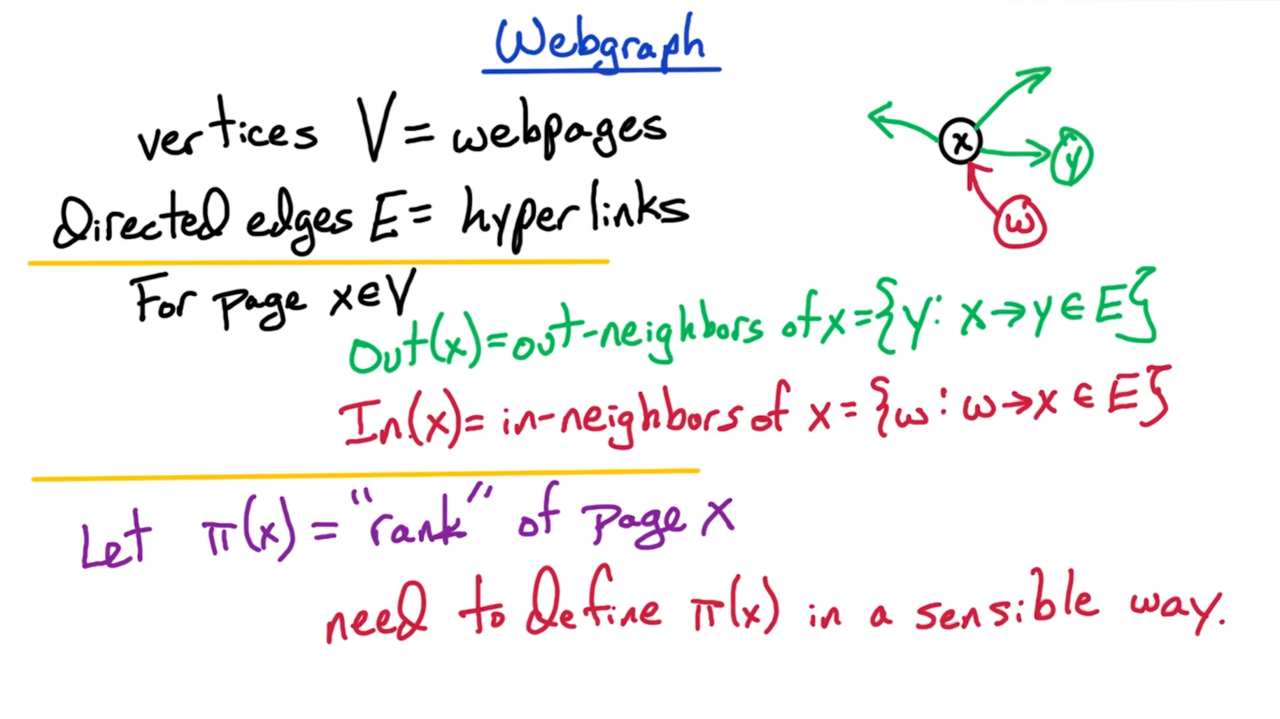 Webgraph
vertices V = webpages
Directed edges E = hyperlinks
x
y
w
For page x∈V
Out(x)=out-neighbors of x={y: x→y∈E}
In(x)= in-neighbors of x={w: w→x∈E}
Let π(x) = "rank" of page x
need to define π(x) in a sensible way.